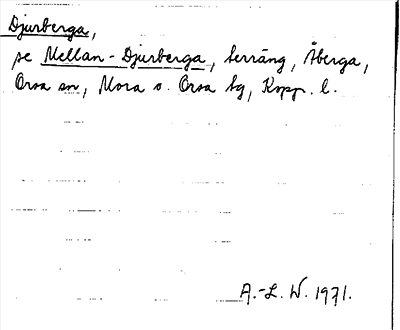 Djurberga,
se Mellan-Djurberga, terräng, Åberga,
Orsa sn, Mora o. Orsa tg, Kopp. l.
A.-L. W. 1971.